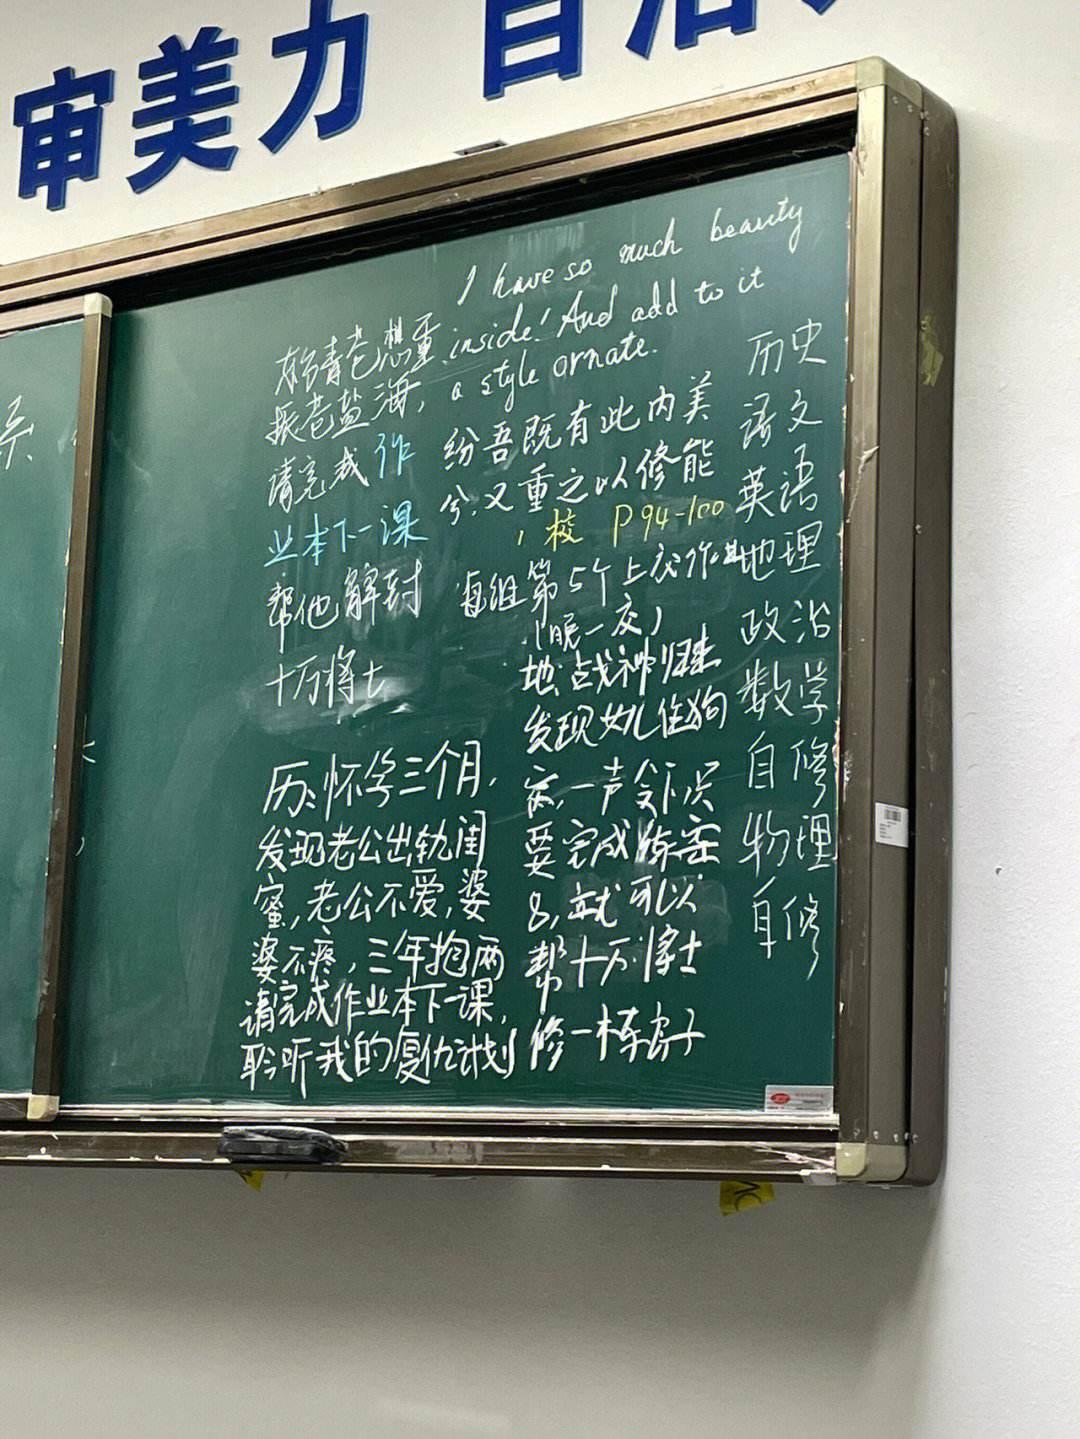 审美力 自治
I have so much beauty
inside! And add to it
a style ornate.
纷吾既有此内美
兮,又重之以修能
,校 P94-100
每组第5个上交作业
(晚一交)
请完成作
业本下一课
帮他解封
十万将士
历:怀孕三个月,
发现老公出轨闺
蜜,老公不爱,婆
婆不疼,三年抱两
请完成作业本下一课,
聆听我的复仇计划
地:战神归来
发现女儿住狗
窝,一声令下只
要完成练案
8,就可以
帮十万将士
修一栋房子
历史
语文
英语
地理
政治
数学
自修
物理
自修